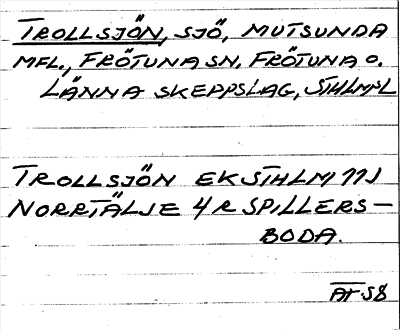 TROLLSJÖN, SJÖ, MUTSUNDA
MFL., FRÖTUNA SN, FRÖTUNA O.
LÄNNA SKEPPSLAG, STHLMSL
TROLLSJÖN EKSTHLM 11J
NORRTÄLJE 4 R SPILLERS-
BODA.
AT-58